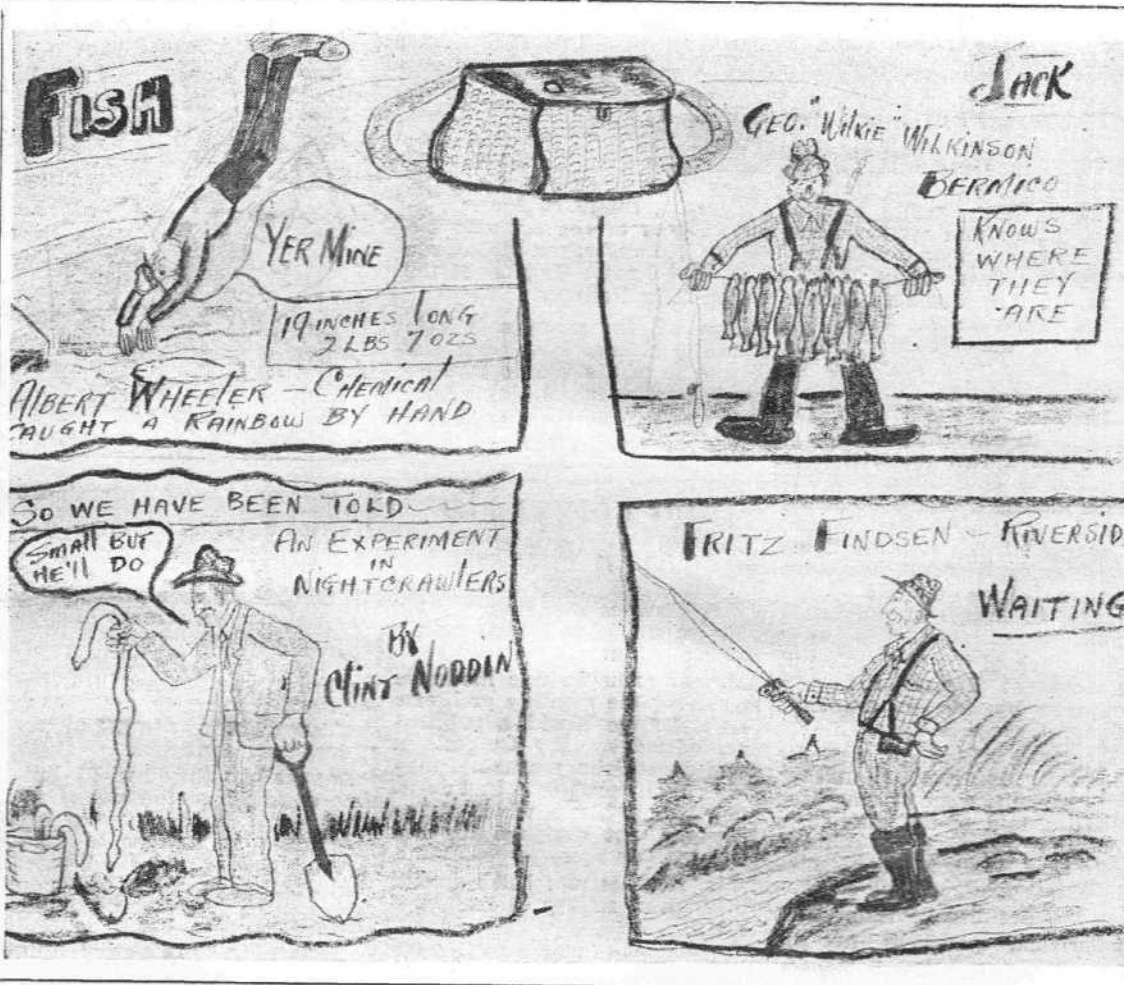 FISH
YER MINE
19 INCHES LONG
2 LBS 7 OZS
ALBERT WHEELER – CHEMICAL
CAUGHT A RAINBOW BY HAND
JACK
GEO. "WILKIE" WILKINSON
BERMICO
KNOWS
WHERE
THEY
ARE
SO WE HAVE BEEN TOLD
SMALL BUT
HE'LL DO
AN EXPERIMENT
IN
NIGHTCRAWLERS
BY
CLINT NODDIN
FRITZ FINDSEN – RIVERSID
WAITING